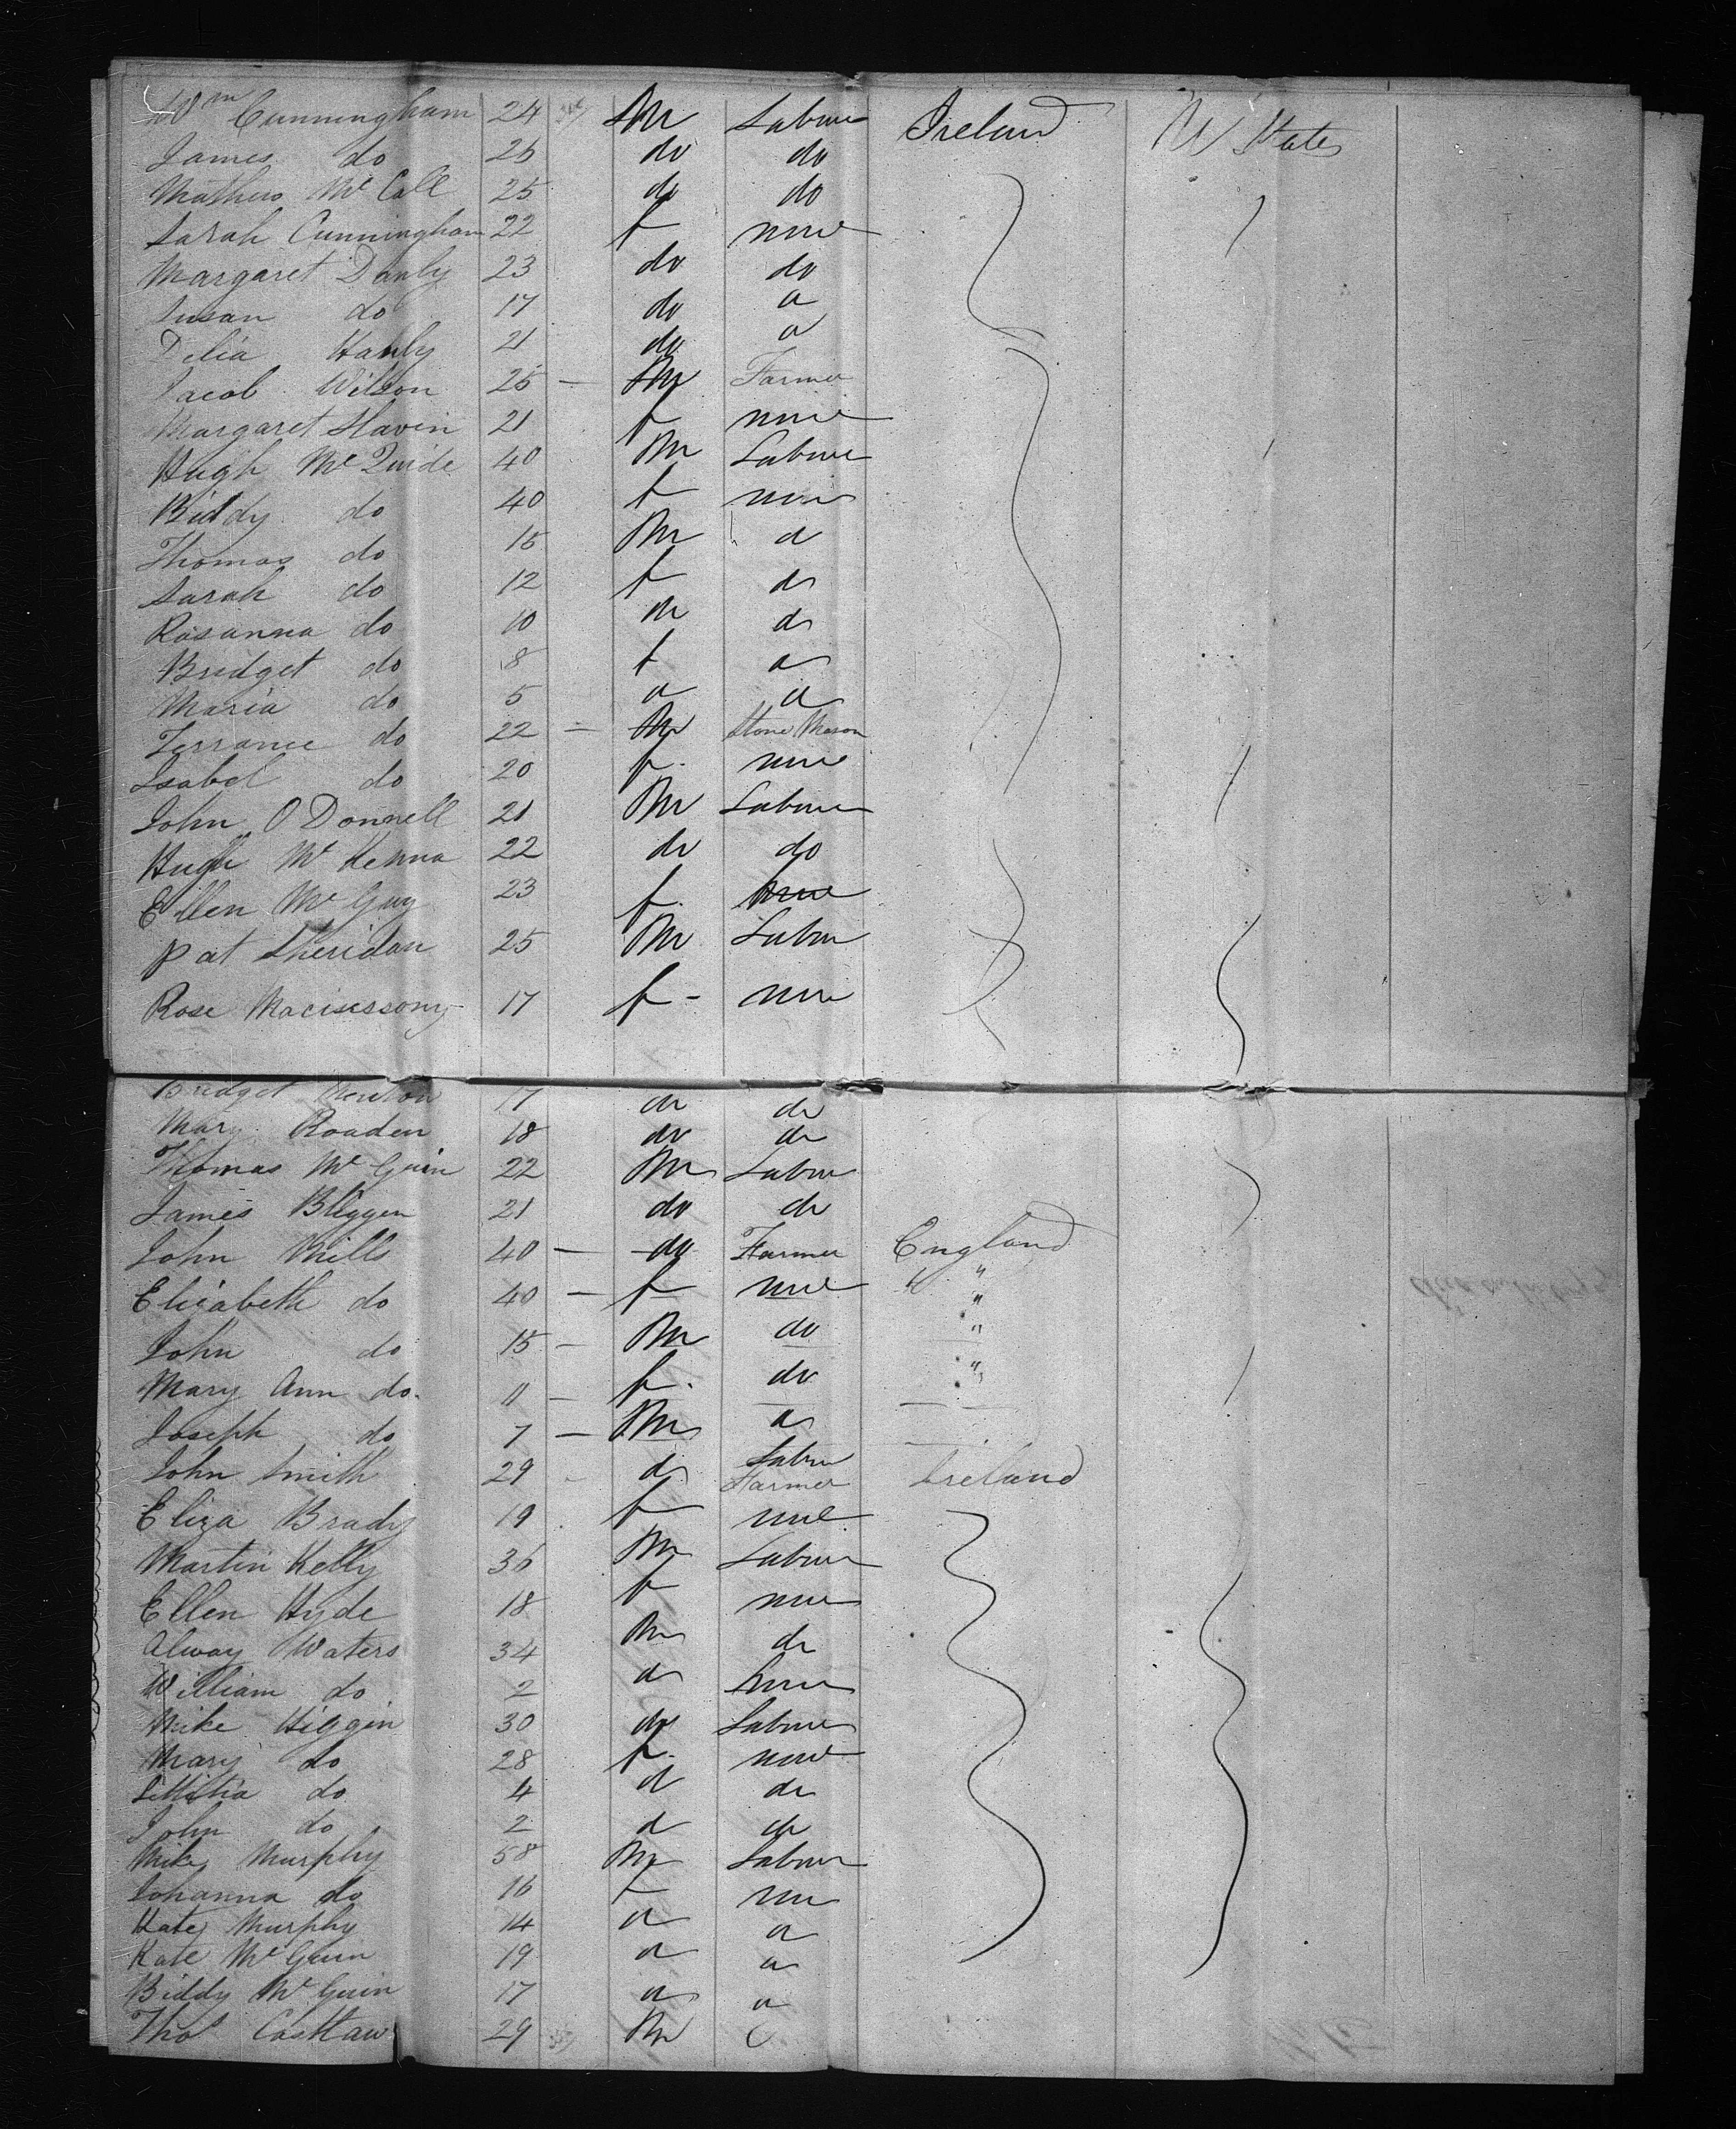 Wm Cunningham 24 M Labour Ireland U States
James do 26 do do
Mathew McCall 25 do do
Sarah Cunningham 22 f none
Margaret Danly 23 do do
Susan do 17 do do
Delia Hanly 21 do do
Jacob Wilson 25 — M Farmer
Margaret Slavin 21 f none
Hugh McQuide 40 M Labour
Biddy do 40 f none
Thomas do 15 M do
Sarah do 12 f do
Rosanna do 10 do do
Bridget do 8 f do
Maria do 5 do do
Terrance do 22 — M Stone Mason
Isabel do 20 f none
John O Donnell 21 M Labour
Hugh McKenna 22 do do
Ellen McGuy 23 f. none
Pat Sheridan 25 M Labour
Rose 17 f - none
Bridget 17 do do
Mary Roaden 18 do do
Thomas McGuin 22 M Labour
James Bliggen 21 do do
John Mills 40 — do Farmer England
Elizabeth do 40 — f none " "
John do 15 — M do "
Mary Ann do. 11 — f. do "
Joseph do 7 — M do
John Smith 29 - do Labour Farmer Ireland
Eliza Brady 19 f none
Martin Kelly 36 M Labour
Ellen Hyde 18 f none
Alway Waters 34 M do
William do 2 do none
Mike Higgin 30 do Labour
Mary do 28 f. none
Letitia do 4 do do
John do 2 do do
Mike Murphy 58 M Labour
Johanna do 16 f none
Kate Murphy 14 do do
Kate McGuin 19 do do
Biddy McGuin 17 do do
Thos 29 M